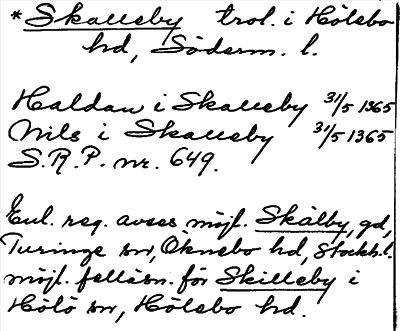 *Skalleby trol. i Hölebo
hd, Söderm. l.
Haldan i Skalleby 31/5 1365
Nils i Skalleby 31/5 1365
S.R.P. nr. 649.
Enl. reg. avses möjl. Skälby, gd,
Turinge sn, Öknebo hd, Stockh. l.
möjl. felläsn. för Skilleby i
Hölö sn, Hölebo hd.